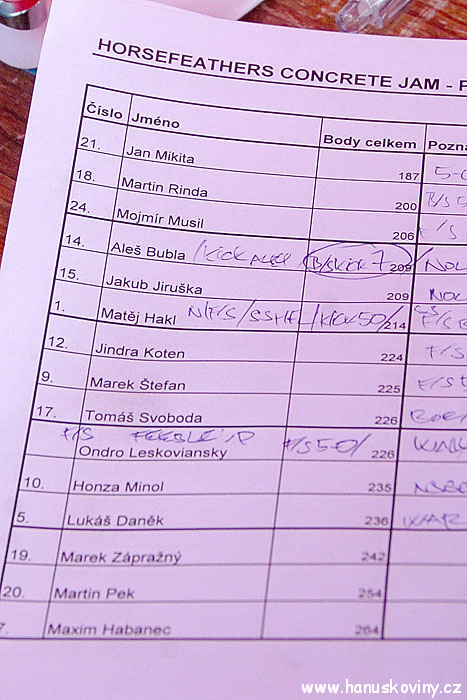 HORSEFEATHERS CONCRETE JAM -
Číslo Jméno Body celkem
21. Jan Mikita 187 5-
18. Martin Rinda 200 B/S 5
24. Mojmír Musil 206 F/S
14. Aleš Bubla /KICK B/S KICK 7 209
15. Jakub Jiruška 209
1. Matěj Hakl N/F/S/SSHFL/KICK50/ 214 F/S
12. Jindra Koten 224 F/S
9. Marek Štefan 225 F/S
17. Tomáš Svoboda 226
F/S F/S 5-0/
Ondro Leskoviansky 226
10. Honza Minol 235
5. Lukáš Daněk 236
19. Marek Zápražný 242
20. Martin Pek 254
7. Maxim Habanec 264
www.hanuskoviny.cz